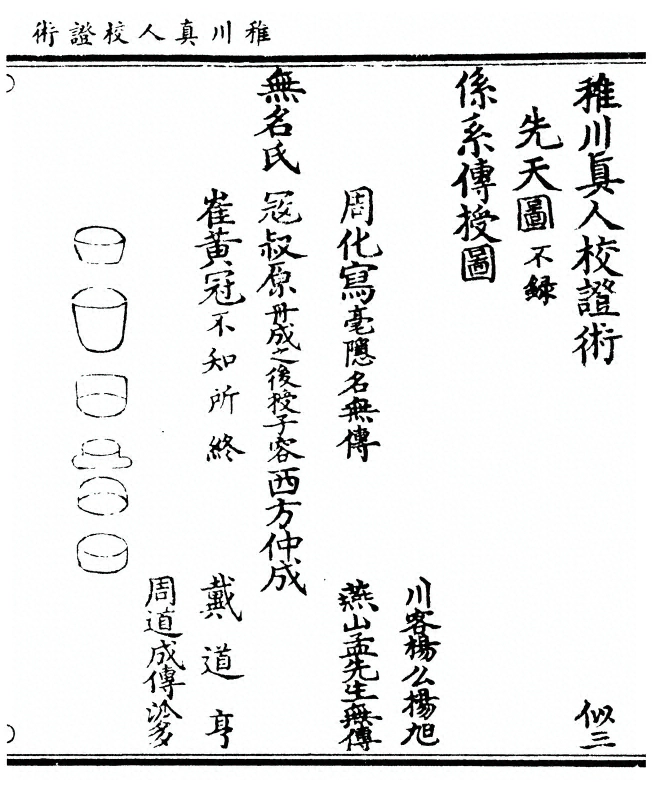 稚川真人校證術
稚川眞人校證術　似三
先天圖　不錄
係系傳授圖
川客楊么楊旭
周化寫毫隱名無傳　燕山孟先生無傳
無名氏　寇叔原丹成之後授子客西方仲成
崔黃冠不知所終　戴道亨
周道成傳